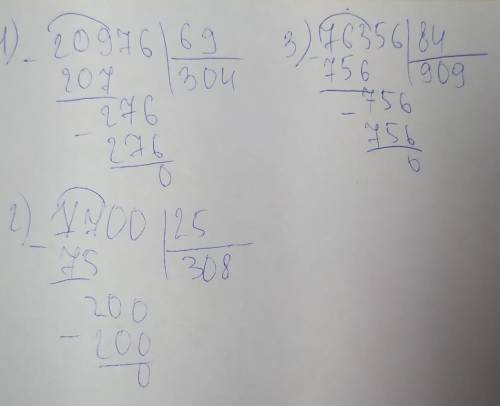 1) 20976 | 69
- 207 | 304
276
- 276
0
2) 7700 | 25
- 75 | 308
200
- 200
0
3) 76356 | 84
- 756 | 909
756
- 756
0